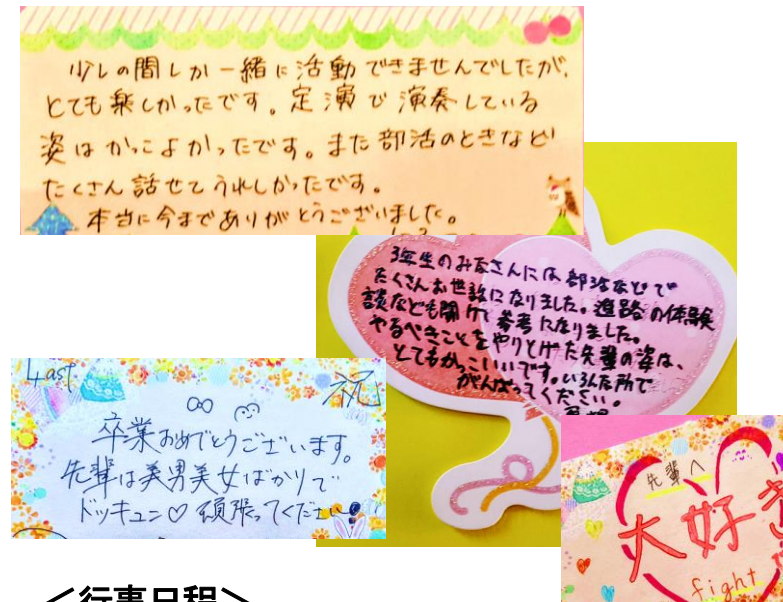 少しの間しか一緒に活動できませんでしたが、
とても楽しかったです。定演で演奏している
姿はかっこよかったです。また部活のときなど
たくさん話せてうれしかったです。
本当に今までありがとうございました。
3年生のみなさんには部活などで
たくさんお世話になりました。進路の体験
談なども聞けて参考になりました。
やるべきことをやりとげた先輩の姿は、
とてもかっこいいです。いろんな所で
がんばってください。
Last
祝
卒業おめでとうございます。
先輩は美男美女ばかりで
ドッキュン♡ 頑張ってください
先輩へ
大好き
fight
＜行事日程＞